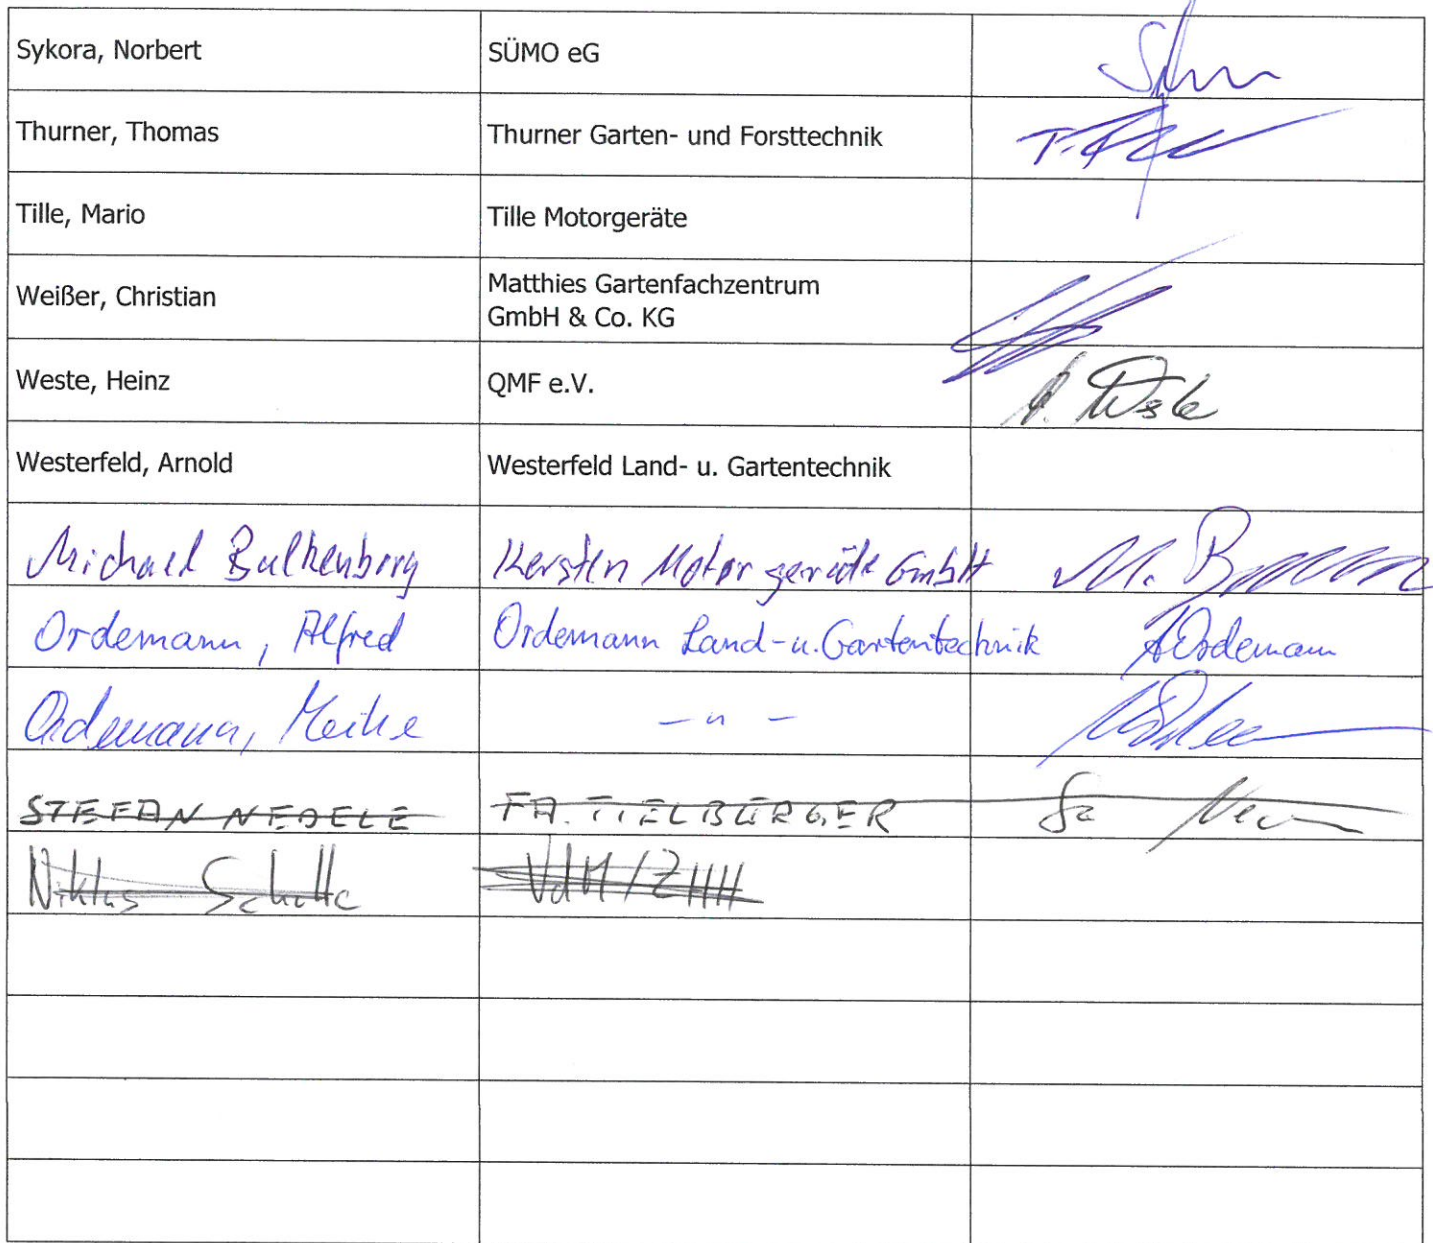 Sykora, Norbert SÜMO eG
Thurner, Thomas Thurner Garten- und Forsttechnik
Tille, Mario Tille Motorgeräte
Weißer, Christian Matthies Gartenfachzentrum
GmbH & Co. KG
Weste, Heinz QMF e.V. H. Weste
Westerfeld, Arnold Westerfeld Land- u. Gartentechnik
Michael Balkenborg Kersten Motorgeräte GmbH M.
Ordemann, Alfred Ordemann Land- u. Gartentechnik AOrdemann
Ordemann, Meike - " -
STEFAN NEDELE FA. TIELBÜRGER
Niklas Schulte VdM/ZHH